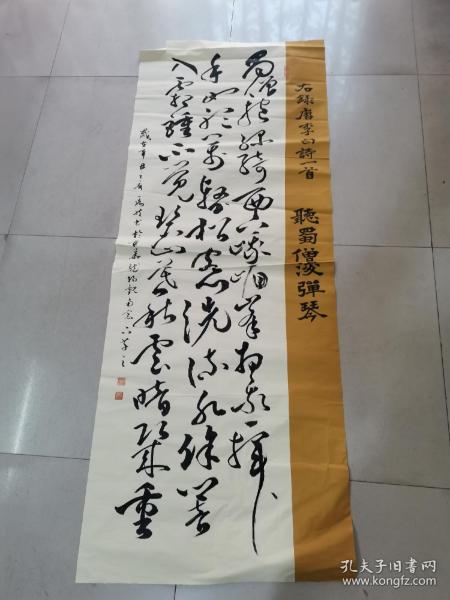 右錄唐李白詩一首 聽蜀僧濬彈琴
蜀僧抱綠綺西下峨眉峯為我一揮
手如聽萬壑松客心洗流水餘響
入霜鐘不覺碧山暮秋雲暗幾重
歲在辛丑之
孔夫子旧书网
www.kongfz.com